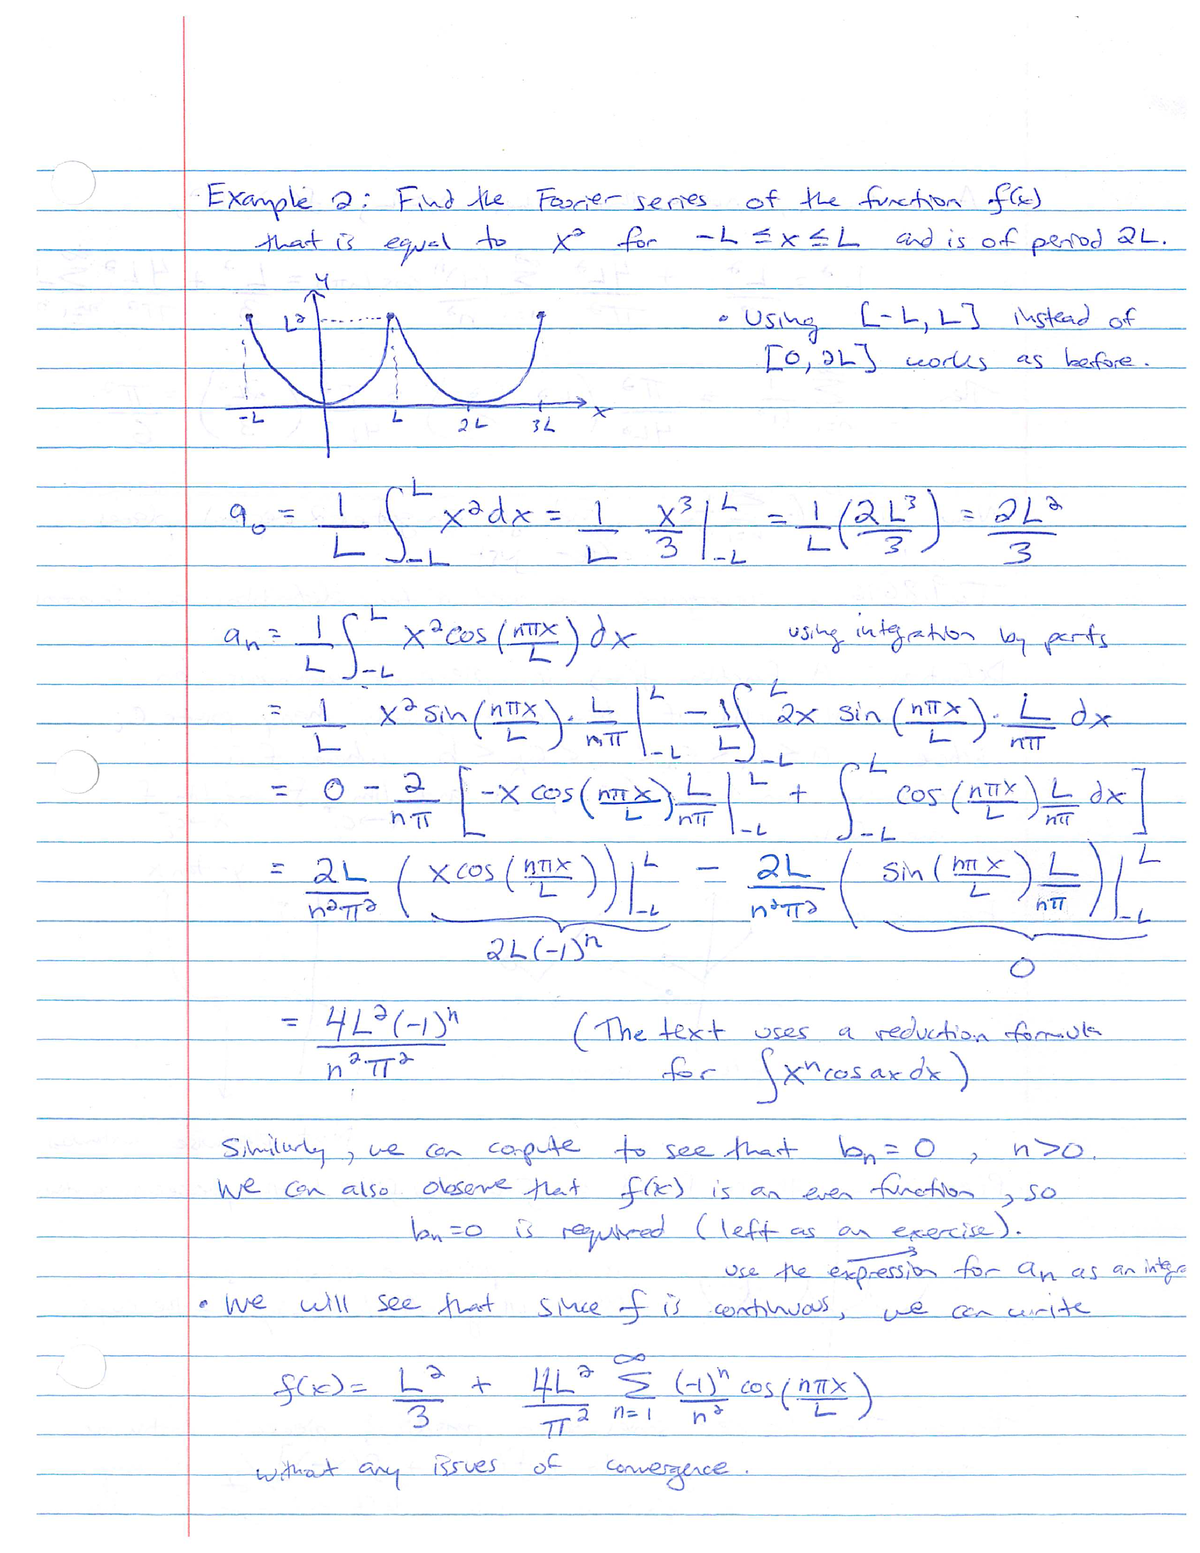 Example 2: Find the Foorier series of the function f(x)
that is equal to x² for -L ≤ x ≤ L and is of period 2L.
y
L²
-L L 2L 3L x
• Using [-L, L] instead of
[0, 2L] works as before.
a₀ = 1/L ∫_{-L}^{L} x² dx = 1/L x³/3 |_{-L}^{L} = 1/L (2L³/3) = 2L²/3
aₙ = 1/L ∫_{-L}^{L} x² cos(nπx/L) dx using integration by parts
= 1/L x² sin(nπx/L) · L/nπ |_{-L}^{L} - 1/L ∫_{-L}^{L} 2x sin(nπx/L) · L/nπ dx
= 0 - 2/nπ [ -x cos(nπx/L) L/nπ |_{-L}^{L} + ∫_{-L}^{L} cos(nπx/L) L/nπ dx ]
= 2L/n²π² ( x cos(nπx/L) ) |_{-L}^{L} - 2L/n²π² ( sin(nπx/L) L/nπ ) |_{-L}^{L}
2L(-1)ⁿ 0
= 4L²(-1)ⁿ/n²π² (The text uses a reduction formula
for ∫xⁿ cos ax dx)
Similarly, we can compute to see that bₙ = 0, n>0.
We can also observe that f(x) is an even function, so
bₙ=0 is required (left as an exercise).
use the expression for aₙ as an integra
• We will see that since f is continuous, we can write
f(x) = L²/3 + 4L²/π² ∑_{n=1}^{∞} (-1)ⁿ/n² cos(nπx/L)
without any issues of convergence.